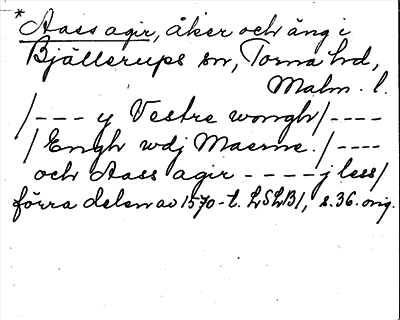 * Aass agir, åker och äng i
Bjällerups sn, Torna hd,
Malm. l.
/--- y Vestre wongh/----
/Engh wdj Maerne./----
och Aass agir ----j less/
förra delen av 1570-t. LSLB1, s. 36. orig.